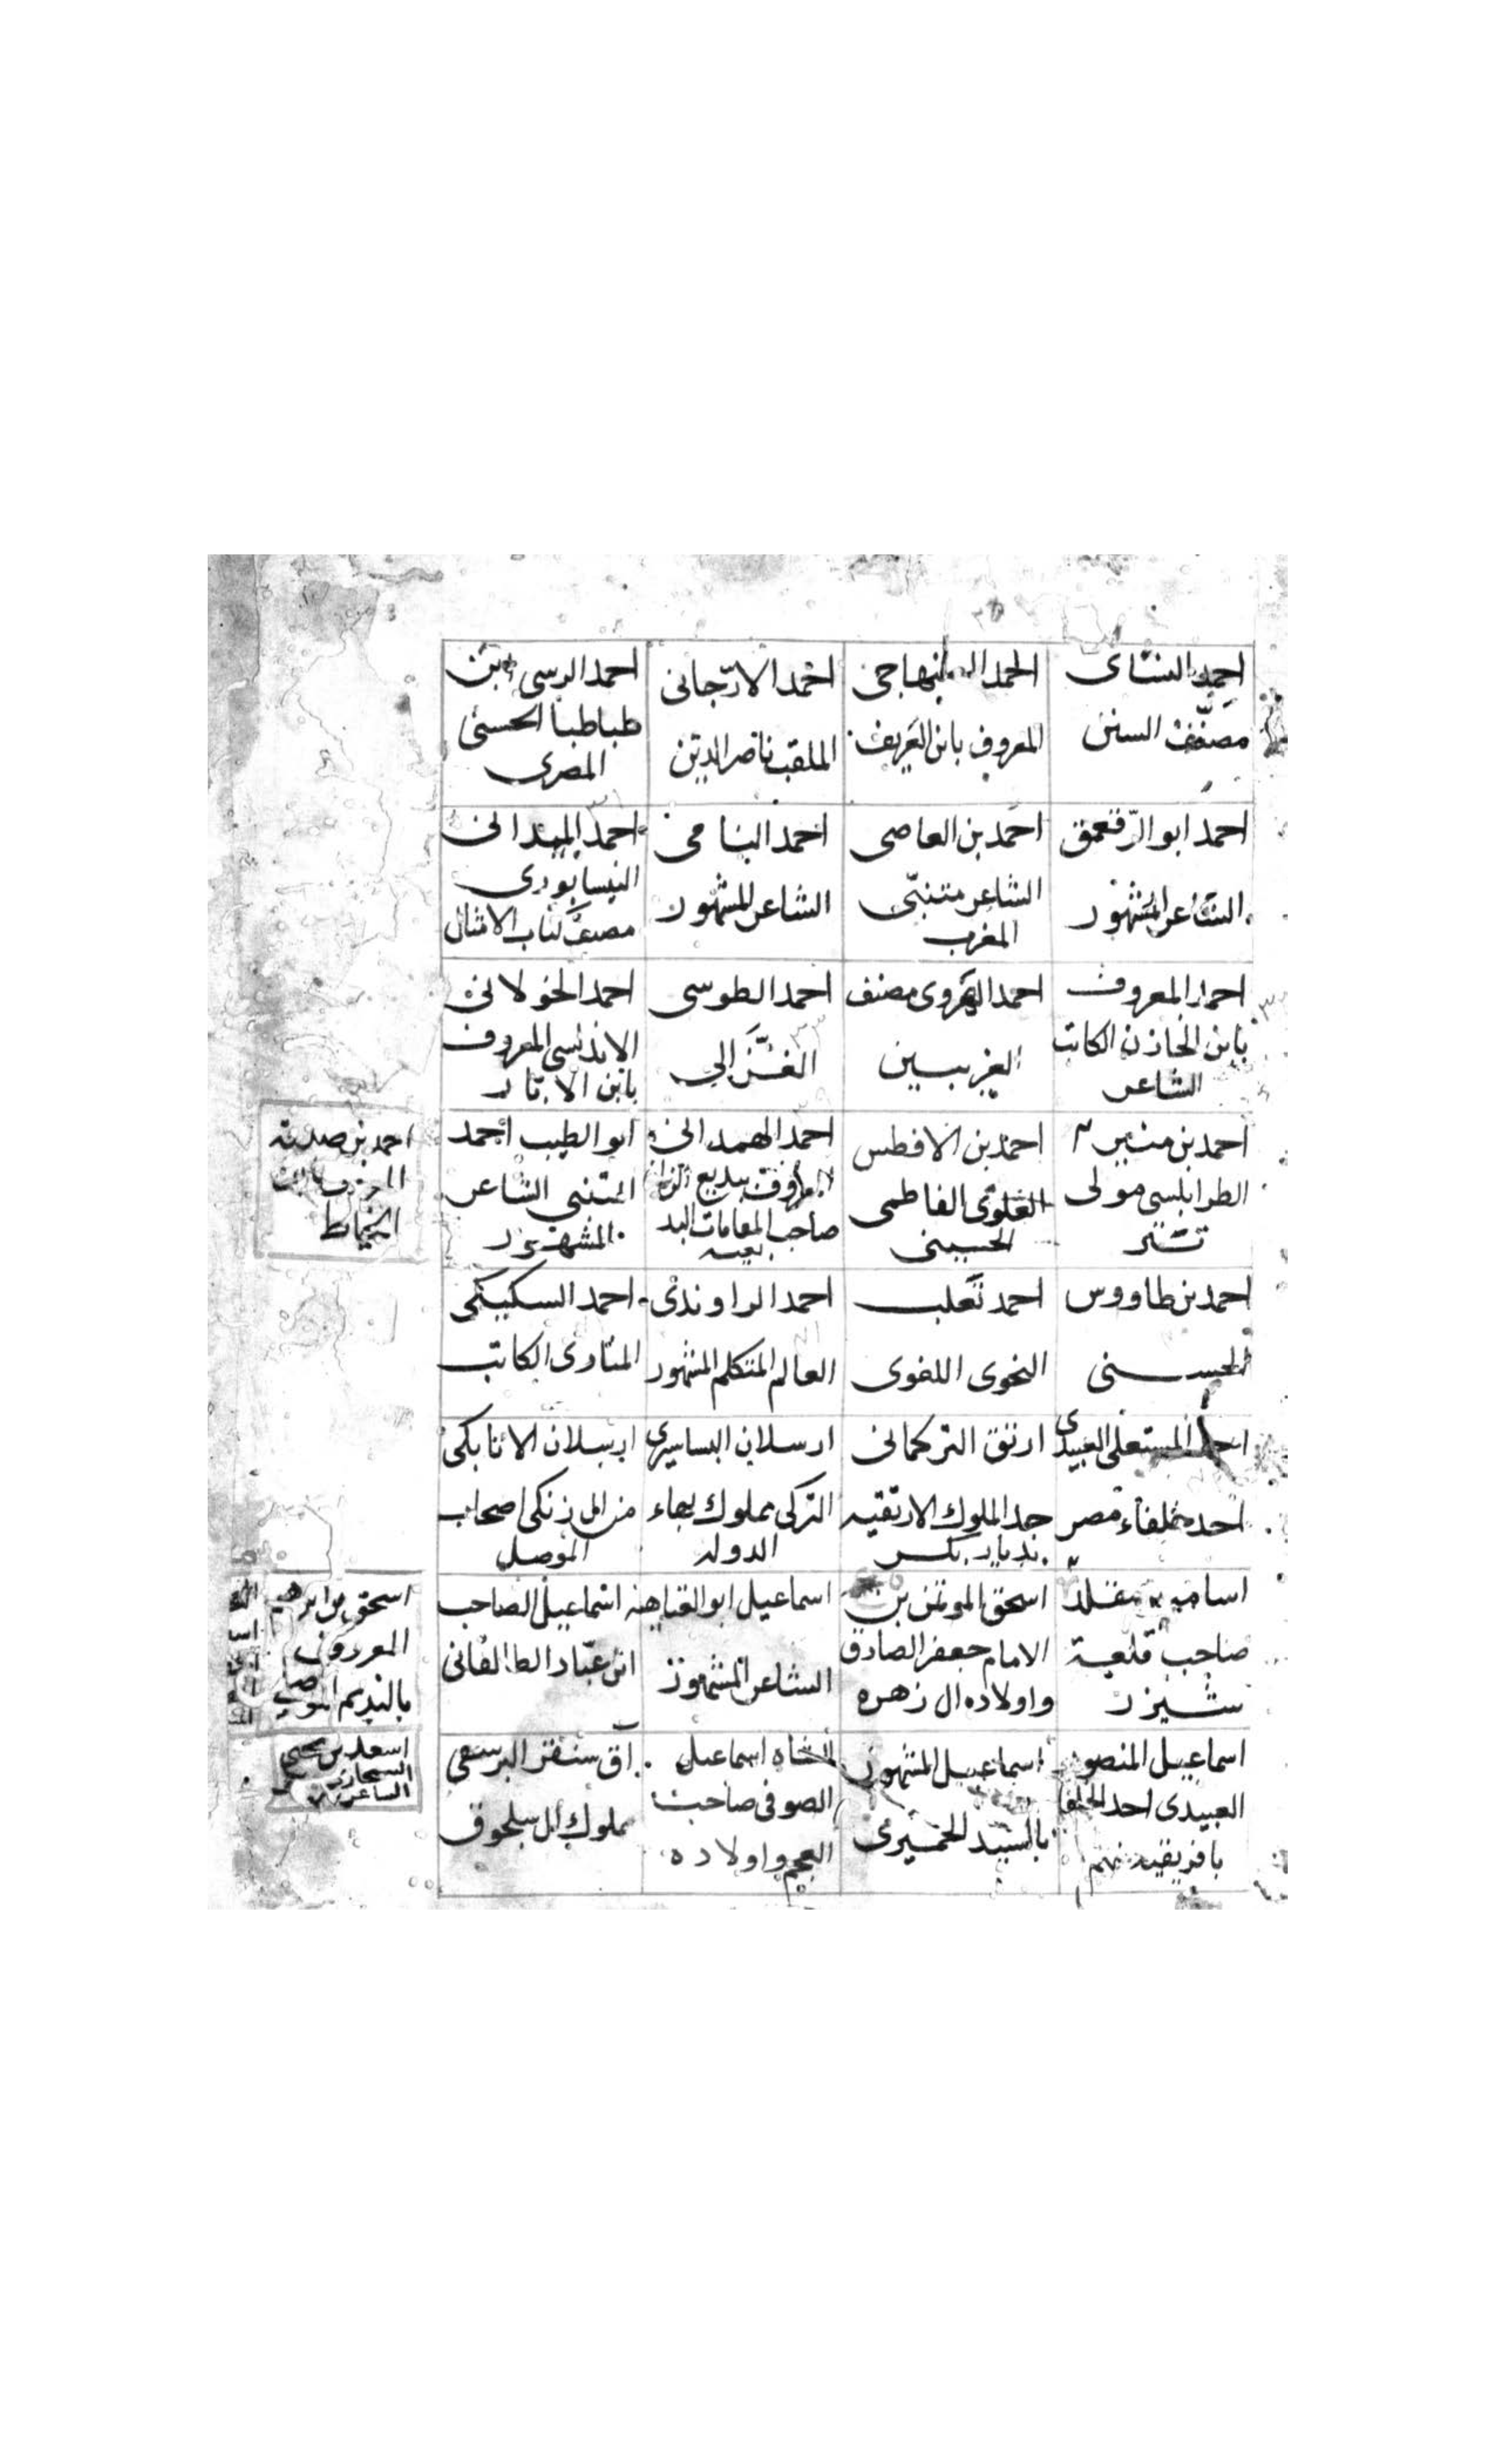 احمد النسائى
مصنف السنن
احمد الصنهاجى
المعروف بابن العريف
احمد الارجانى
الملقب ناصر الدين
احمد الرسى ابن
طباطبا الحسنى
المصرى
احمد ابو الرقعمق
الشاعر المشهور
احمد بن العاصى
الشاعر متنبى
المغرب
احمد النامى
الشاعر المشهور
احمد الميدانى
النيسابورى
مصنف كتاب الامثال
احمد المعروف
بابن الخازن الكاتب
الشاعر
احمد الهروى مصنف
الغريبين
احمد الطوسى
الغزالى
احمد الخولانى
الاندلسى المعروف
بابن الابار
احمد بن منير
الطرابلسى مولى
تتش
احمد بن الافطس
العلوى الفاطمى
الحسينى
احمد الهمدانى
المعروف ببديع الزمان
صاحب المقامات البد
يعيه
ابو الطيب احمد
المتنبى الشاعر
المشهور
احمد بن صدقه
الخياط
احمد بن طاووس
الحسنى
احمد ثعلب
النحوى اللغوى
احمد الراوندى
العالم المتكلم المشهور
احمد السكيبكى
المنازى الكاتب
احمد المستعلى العبيدى
احد خلفاء مصر
ارتق التركمانى
جد الملوك الارتقيه
بديار بكر
ارسلان البساسيرى
التركى مملوك بهاء
الدوله
ارسلان الاتابكى
من ال زنكى اصحاب
الموصل
اسامه منقلذ
صاحب قلعة
شيزر
اسحق الموتمن بن
الامام جعفر الصادق
واولاده ال زهره
اسماعيل ابو العتاهيه
الشاعر المشهور
اسماعيل الصاحب
ابن عباد الطالقانى
اسحق بن ابرهيم
المعروف
بالنديم الموصلى
اسماعيل المنصور
العبيدى احد الخلفا
بافريقيه منهم
اسماعيل المشهور
بالسيد الحميرى
الشاه اسماعيل
الصوفى صاحب
العجم واولاده
آق سنقر البرسقى
مملوك ال سلجوق
اسعد بن يحيى
السنجارى
الشاعر